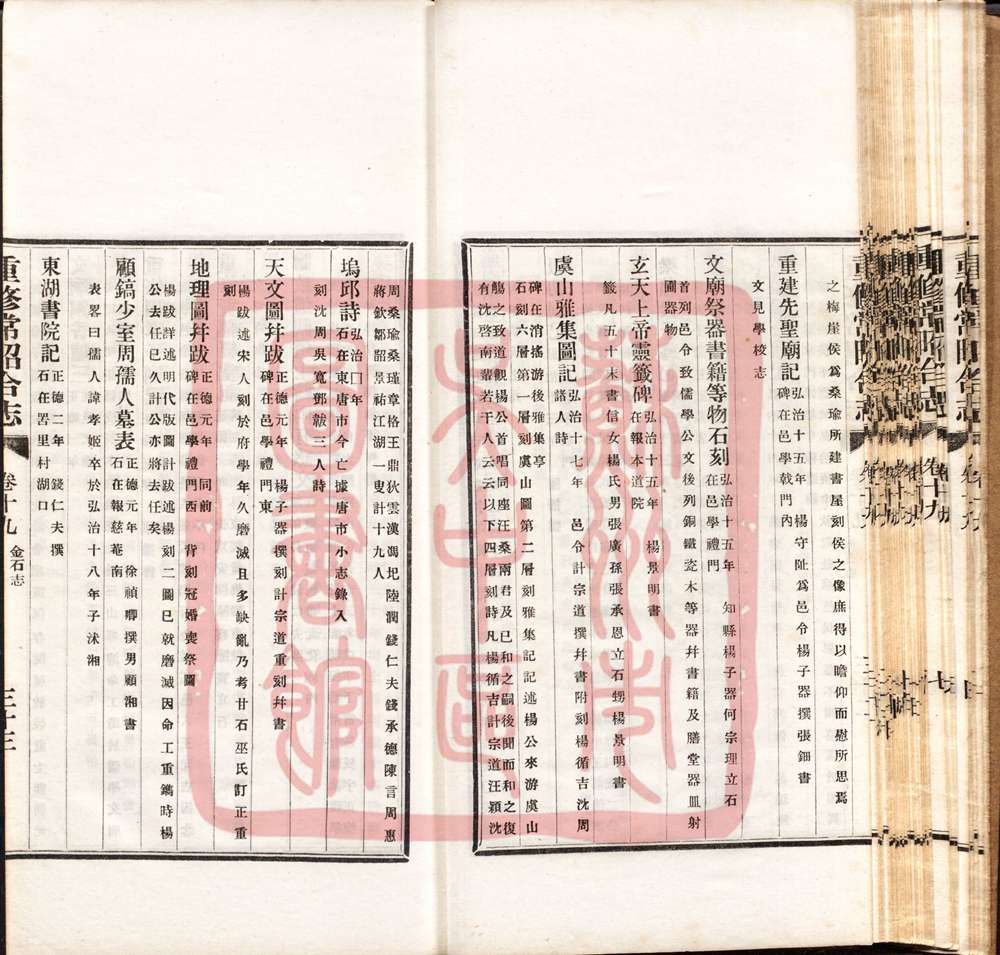 之梅崖侯爲桑瑜所建書屋刻侯之像庶得以瞻仰而慰所思焉
重建先聖廟記 弘治十五年 楊守阯爲邑令楊子器撰張鈿書
碑在邑學戟門內
文見學校志
文廟祭器書籍等物石刻 弘治十五年 知縣楊子器何宗理立石
在邑學禮門
首列邑令致儒學公文後列銅鐵瓷木等器幷書籍及膳堂器皿射
圃器物
玄天上帝靈籤碑 弘治十五年 楊景明書
在報本道院
籤凡五十末書信女楊氏男張廣孫張承恩立石甥楊景明書
虞山雅集圖記 弘治十七年 邑令計宗道撰幷書附刻楊循吉沈周
諸人詩
碑在消搖游後雅集亭
石刻六層第一層刻虞山圖第二層刻雅集記記述楊公來游虞山
觴之致道觀楊公首唱同座汪桑兩君及已和之嗣後聞而和之復
有沈啓南輩若干人云云以下四層刻詩凡楊循吉計宗道汪穎沈
周桑瑜桑瑾章格王鼎狄雲漢馮玘陸潤錢仁夫錢承德陳言周惠
蔣欽鄒韶景祐江湖一叟計十九人
塢邱詩 弘治囗年
石在東唐市今亡據唐市小志錄入
刻沈周吳寬鄧韍三人詩
天文圖幷跋 正德元年 楊子器撰刻計宗道重刻幷書
碑在邑學禮門東
楊跋述宋人刻於府學年久磨滅且多缺亂乃考甘石巫氏訂正重
刻
地理圖幷跋 正德元年 同前 背刻冠婚喪祭圖
碑在邑學禮門西
楊跋詳述明代版圖計跋述楊刻二圖已就磨滅因命工重鐫時楊
公去任已久計公亦將去任矣
顧鎬少室周孺人墓表 正德元年 徐禎卿撰男顧湘書
石在報慈菴南
表畧曰孺人諱孝姬卒於弘治十八年子沭湘
東湖書院記 正德二年 錢仁夫撰
石在罟里村湖口
重修常昭合志 卷十九 金石志